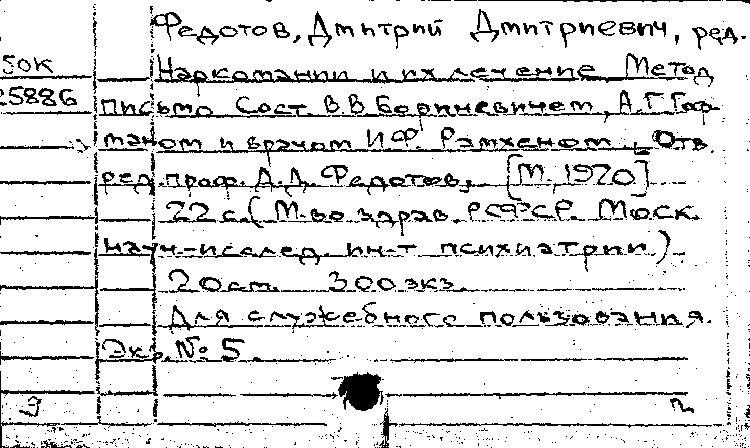 Федотов, Дмитрий Дмитриевич, ред.
50К Наркомании и их лечение. Метод
25886 письмо Сост. В.В. Бориневичем, А.Г. Гоф-
маном и врачом И.Ф. Рамхеном. Отв.
ред. проф. Д.Д. Федотов. [М., 1970]
22 с. (М-во здрав. РСФСР. Моск.
науч-исслед. ин-т психиатрии)
20 см. 300 экз.
Для служебного пользования.
Экз. № 5.